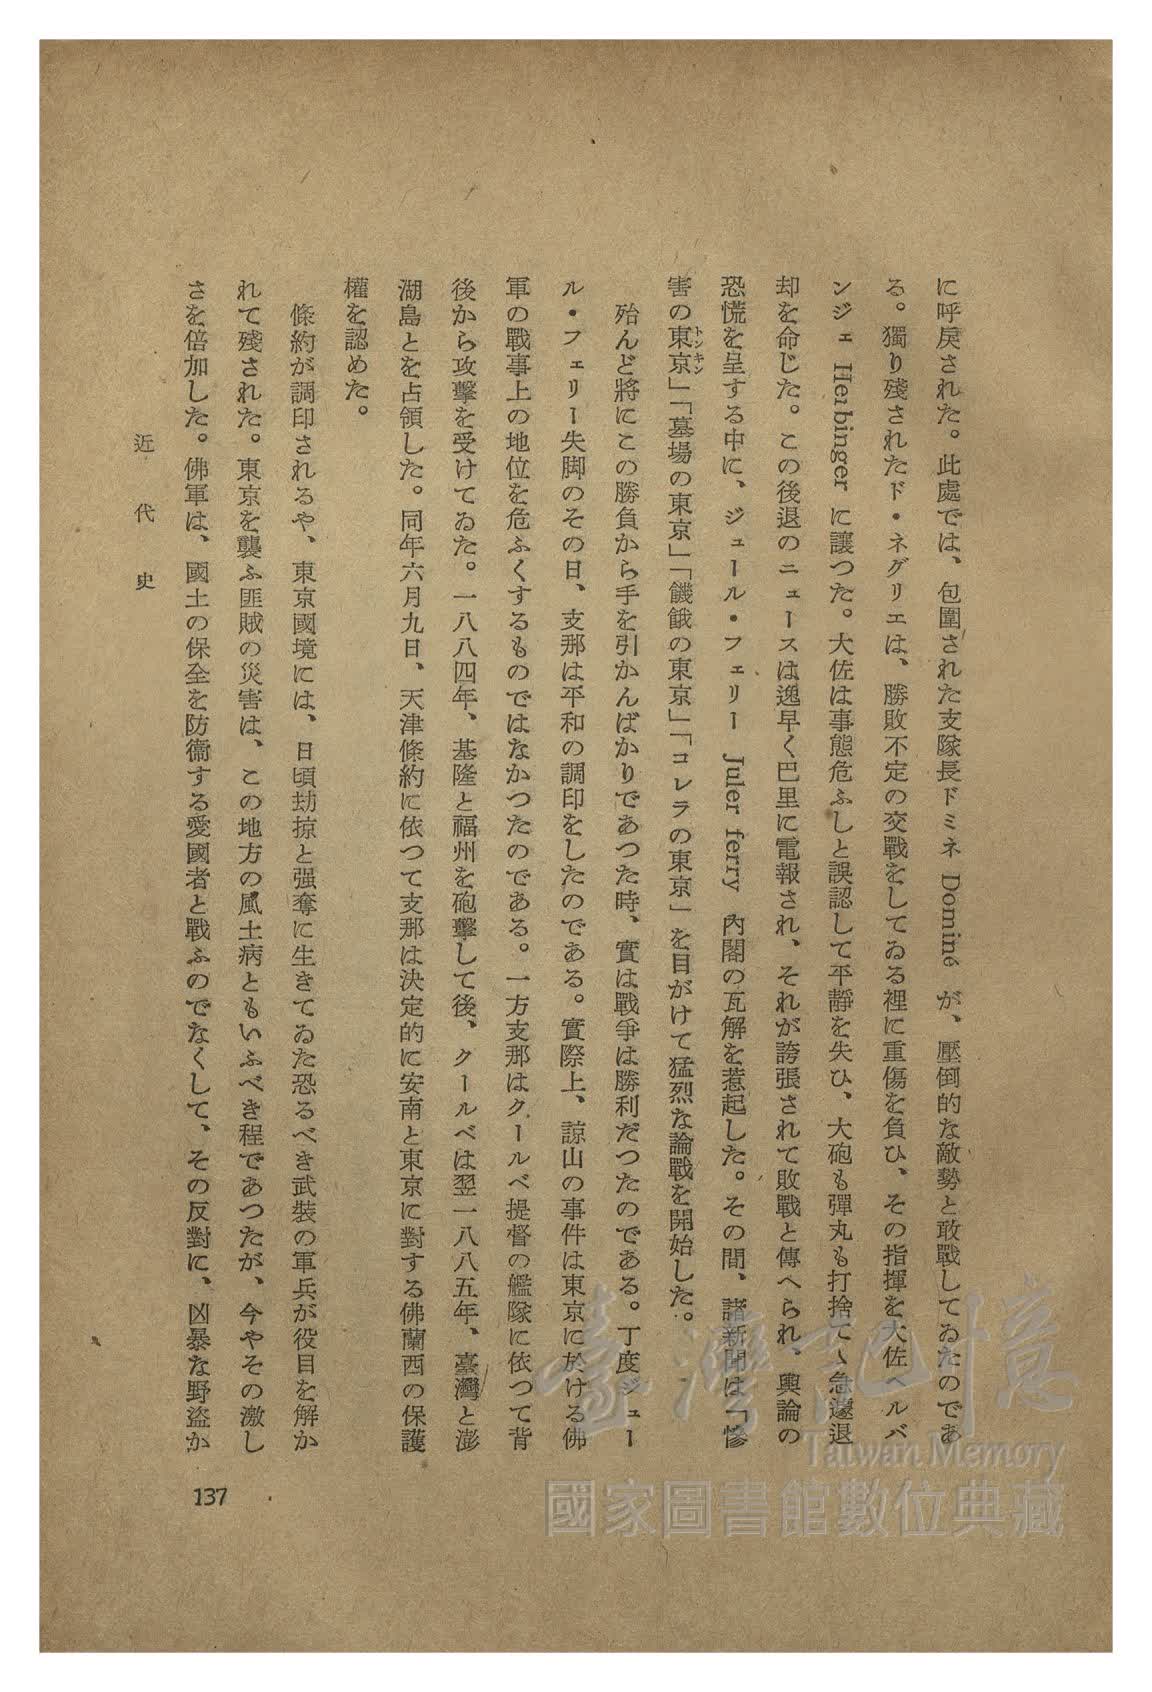 に呼戻された。此處では、包圍された支隊長ドミネ Domine が、壓倒的な敵勢と敢戰してゐたのであ
る。獨り殘されたド・ネグリエは、勝敗不定の交戰をしてゐる裡に重傷を負ひ、その指揮を大佐ヘルバ
ンジェ Herbinger に讓つた。大佐は事態危ふしと誤認して平靜を失ひ、大砲も彈丸も打捨てゝ急遽退
却を命じた。この後退のニュースは逸早く巴里に電報され、それが誇張されて敗戰と傳へられ、輿論の
恐慌を呈する中に、ジュール・フェリー Juler ferry 內閣の瓦解を惹起した。その間、諸新聞は「慘
害の東京」「墓場の東京」「饑餓の東京」「コレラの東京」を目がけて猛烈な論戰を開始した。
トンキン
殆んど將にこの勝負から手を引かんばかりであつた時、實は戰爭は勝利だつたのである。丁度ジュー
ル・フェリー失脚のその日、支那は平和の調印をしたのである。實際上、諒山の事件は東京に於ける佛
軍の戰事上の地位を危ふくするものではなかつたのである。一方支那はクールベ提督の艦隊に依つて背
後から攻擊を受けてゐた。一八八四年、基隆と福州を砲擊して後、クールベは翌一八八五年、臺灣と澎
湖島とを占領した。同年六月九日、天津條約に依つて支那は決定的に安南と東京に對する佛蘭西の保護
權を認めた。
條約が調印されるや、東京國境には、日頃劫掠と强奪に生きてゐた恐るべき武裝の軍兵が役目を解か
れて殘された。東京を襲ふ匪賊の災害は、この地方の風土病ともいふべき程であつたが、今やその激し
さを倍加した。佛軍は、國土の保全を防衞する愛國者と戰ふのでなくして、その反對に、凶暴な野盜か
近代史
137
臺灣記憶
Taiwan Memory
國家圖書館數位典藏